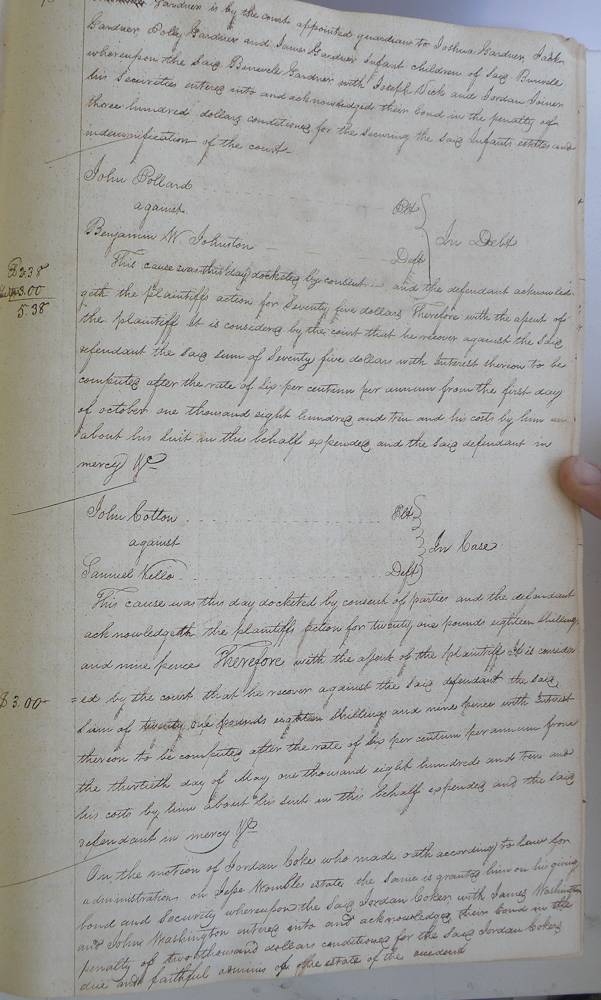 Gardner is by the court appointed guardian to Joshua Gardner, Jack
Gardner, Polly Gardner and James Gardner Infant children of said
whereupon the said Gardner with Joseph Dick and Jordan Joiner
his Securities entered into and acknowledged their bond in the penalty of
three hundred dollars conditioned for the securing the said Infants estates and
indemnification of the court
John Pollard Plt
against In Debt
Benjamin W Johnston Deft
This cause was this day docketed by consent and the defendant acknowled
$2.38
3.00
5.38
geth the plaintiffs action for Seventy five dollars Therefore with the assent of
the plaintiff It is considered by the court that he recover against the said
defendant the said sum of Seventy five dollars with Interest thereon to be
computed after the rate of Six per centum per annum from the first day
of october one thousand eight hundred and ten and his costs by him
about his Suit in this behalf expended and the said defendant in
mercy &c
John Cotton Plt
against In Case
Samuel Kello Deft
This cause was this day docketed by consent of parties and the defendant
acknowledgeth the plaintiffs action for twenty one pounds eighteen Shillings
and nine pence Therefore with the assent of the plaintiff It is consider
$3.00
=ed by the court that he recover against the said defendant the said
Sum of twenty one pounds eighteen Shillings and nine pence with Interest
thereon to be computed after the rate of Six per centum per annum from
the thirtieth day of May one thousand eight hundred and ten and
his costs by him about his suit in this behalf expended and the said
defendant in mercy &c
On the motion of Jordan Coker who made oath according to law for
administration on Jesse Wombles estate the Same is granted him on his giving
bond and Security whereupon the said Jordan Coker with James Washington
and John Washington entered into and acknowledged their bond in the
penalty of two thousand dollars conditioned for the said Jordan Cokers
due and faithful adminis of the estate of the decedent